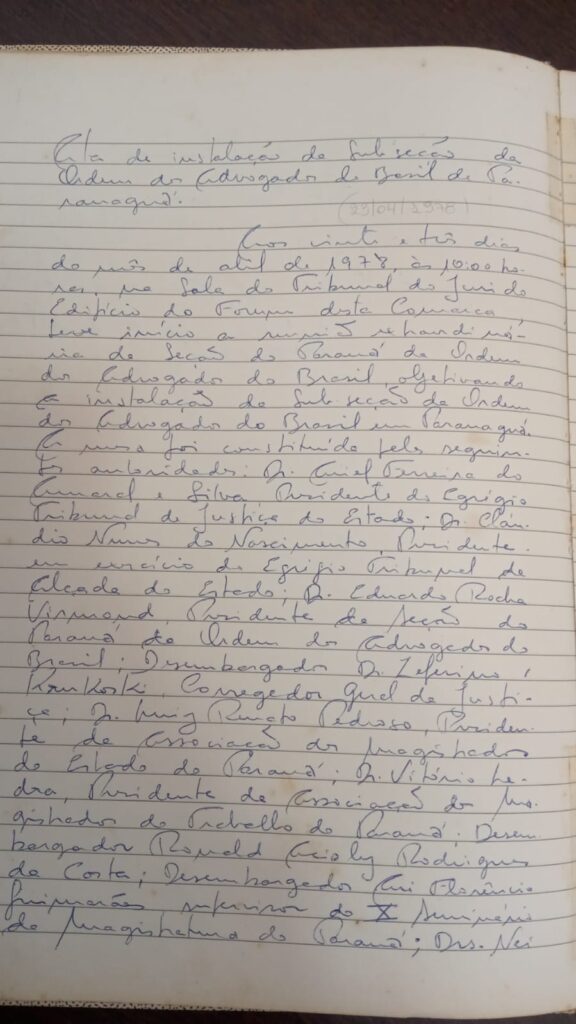 Ata de instalação da Subseção da
Ordem dos Advogados do Brasil de Pa-
ranaguá.
(23/04/1978)
Aos vinte e três dias
do mês de abril de 1978, às 10:00 ho-
ras, na Sala do Tribunal do Juri do
Edifício do Forum desta Comarca,
teve início a reunião extraordiná-
ria da Seção do Paraná da Ordem
dos Advogados do Brasil, objetivando
a instalação da Subseção da Ordem
dos Advogados do Brasil em Paranaguá.
A mesa foi constituída pelas seguin-
tes autoridades: Dr. Ariel Ferreira do
Amaral e Silva Presidente do Egrégio
Tribunal de Justiça do Estado; Dr. Cláu-
dio Nunes do Nascimento, Presidente
em exercício do Egrégio Tribunal de
Alçada do Estado; Dr. Eduardo Rocha
Virmond, Presidente da Seção do
Paraná da Ordem dos Advogados do
Brasil; Desembargador Dr. Zeferino
Krukoski, Corregedor Geral da Justi-
ça; Dr. Luiz Renato Pedroso, Presiden-
te da Associação dos Magistrados
do Estado do Paraná; Dr. Vitório Le-
dra, Presidente da Associação dos Ma-
gistrados do Trabalho do Paraná; Desem-
bargador Ronald Accioly Rodrigues
da Costa; Desembargador Ari Florêncio
Guimarães supervisor do X Seminário
da Magistratura do Paraná; Drs. Nei